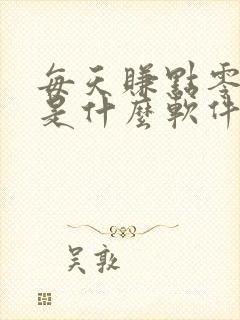 每天賺點零
是什麼軟件
吴敦